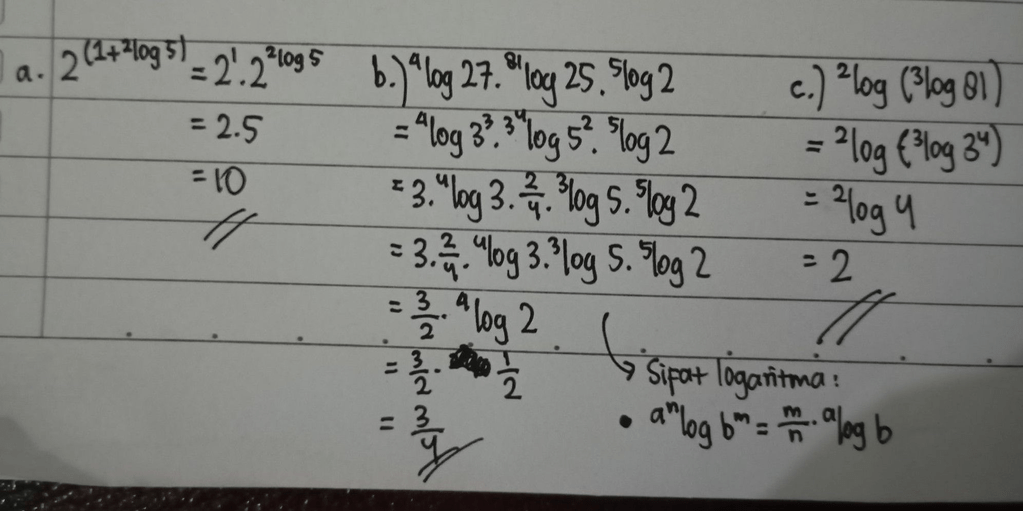 a. 2^(1+²log 5) = 2¹ . 2^²log 5
= 2.5
= 10
b.) ⁴log 27. ⁸¹log 25. ⁵log 2
= ⁴log 3³. ³^⁴log 5². ⁵log 2
= 3. ⁴log 3. 2/4. ³log 5. ⁵log 2
= 3. 2/4. ⁴log 3. ³log 5. ⁵log 2
= 3/2 . ⁴log 2
= 3/2 . 1/2
= 3/4
c.) ²log (³log 81)
= ²log (³log 3⁴)
= ²log 4
= 2
Sifat logaritma :
• a^n log b^m = m/n . ᵃlog b